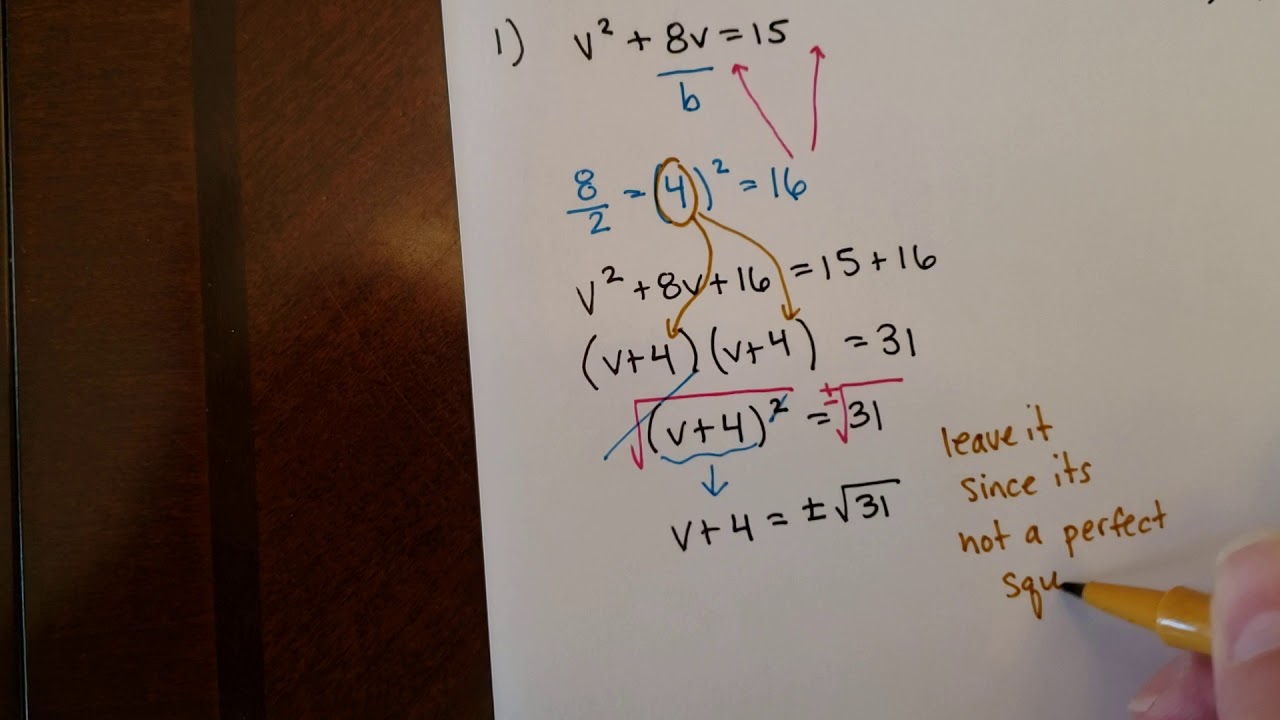 1) v² + 8v = 15
b
8/2 = (4)² = 16
v² + 8v + 16 = 15 + 16
(v+4)(v+4) = 31
√(v+4)² = ±√31
v + 4 = ±√31
leave it
since its
not a perfect
squ